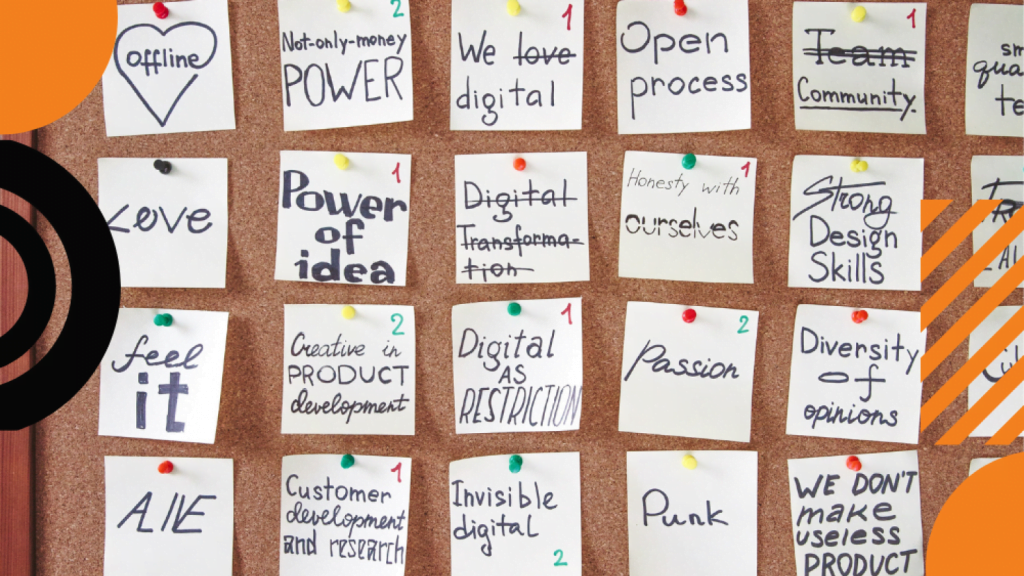 offline
2
Not-only-money
POWER
1
We love
digital
Open
process
1
Team
Community.
Love
1
Power
of
idea
Digital
Transforma-
tion
1
Honesty with
ourselves
Strong
Design
Skills
feel
it
2
Creative in
PRODUCT
development
1
Digital
AS
RESTRICTION
2
Passion
Diversity
of
opinions
ALIVE
1
Customer
development
and research
Invisible
digital
2
Punk
WE DON'T
make
useless
PRODUCT